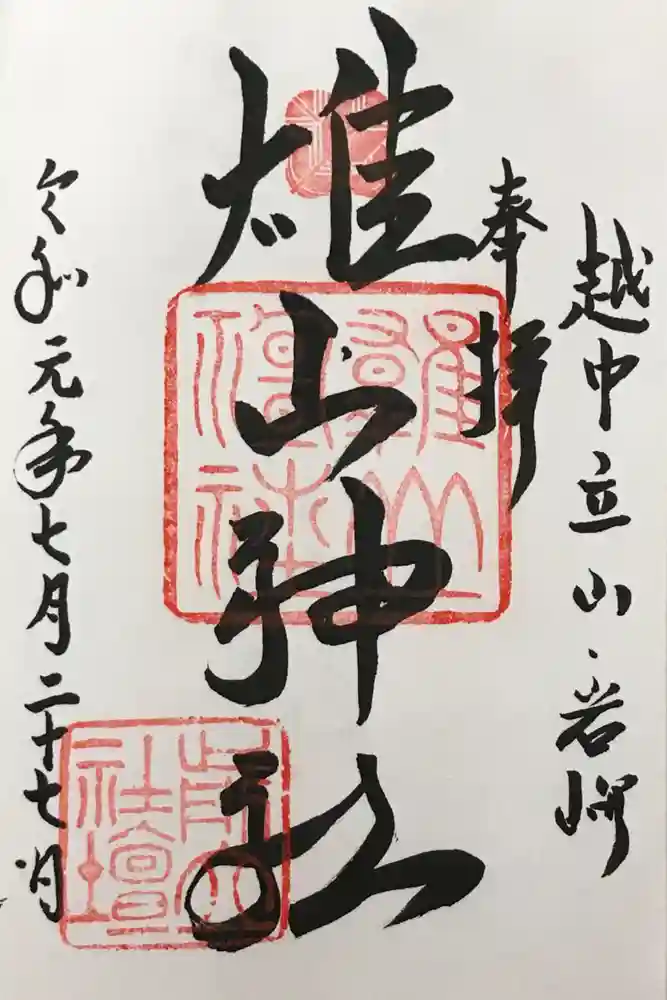 越中立山・岩峅
奉拝
雄山神社
雄山神社
前立社壇
令和元年七月二十七日